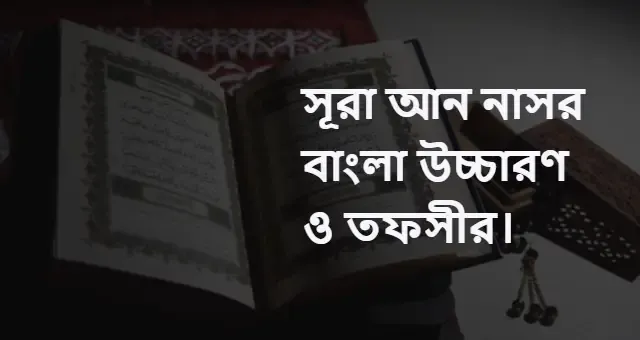 সূরা আন নাসর
বাংলা উচ্চারণ
ও তফসীর।